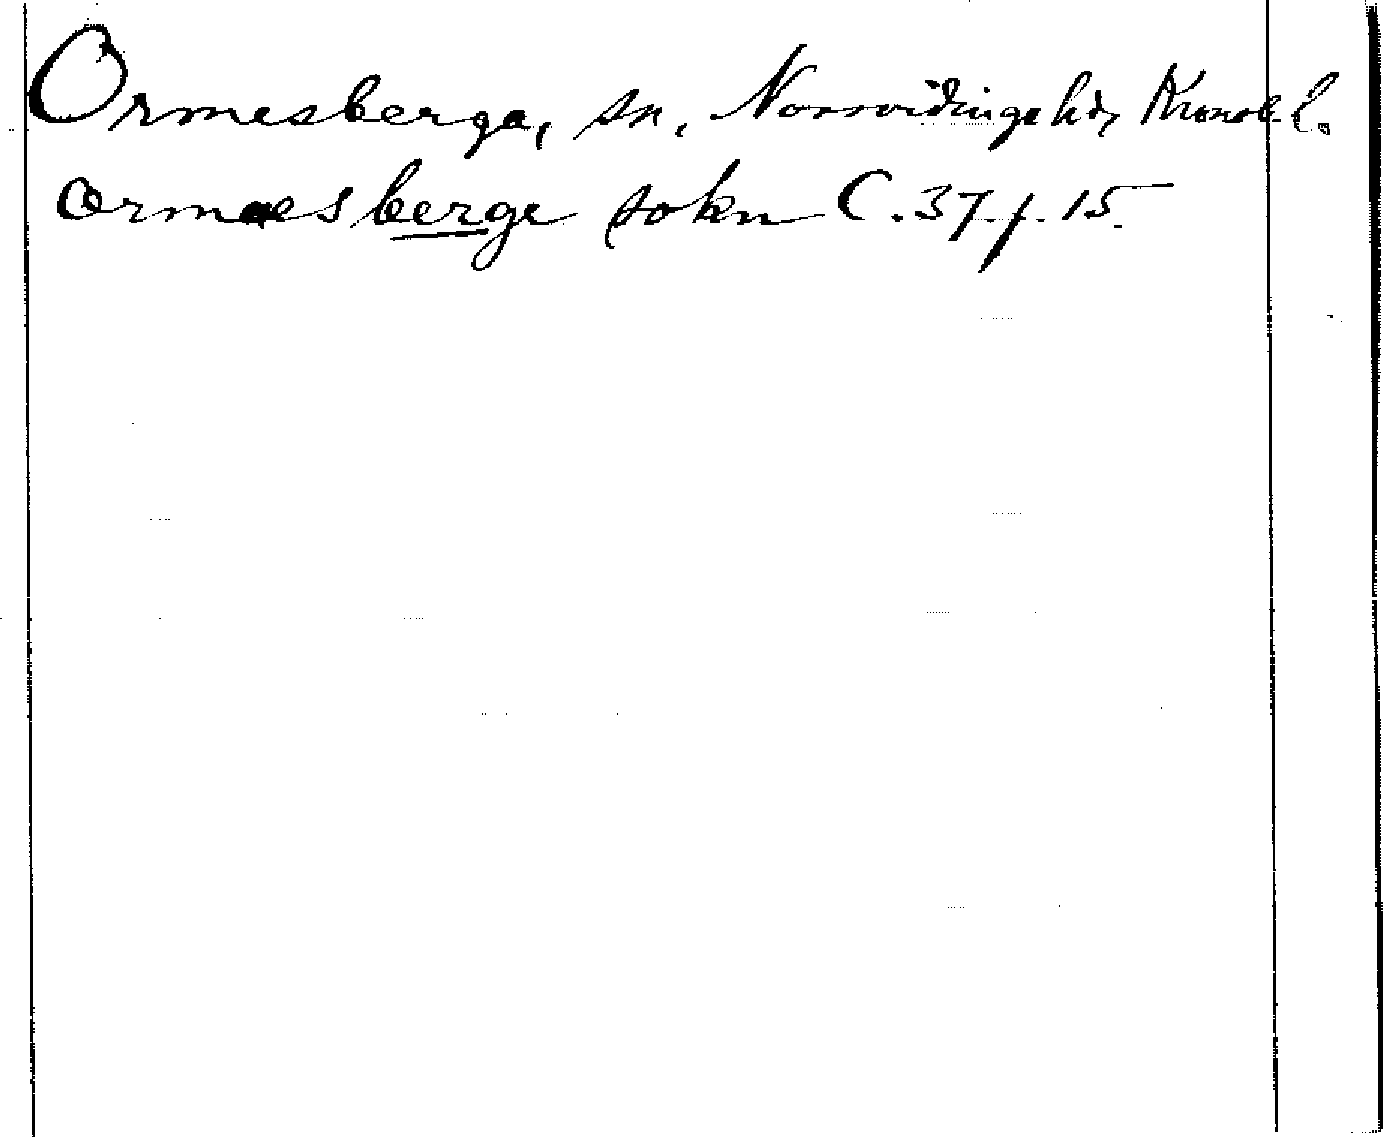 Ormesberga, sn, Norrvidinge hd, Kronob. l.
Ormæsberge sokn C. 37. f. 15.